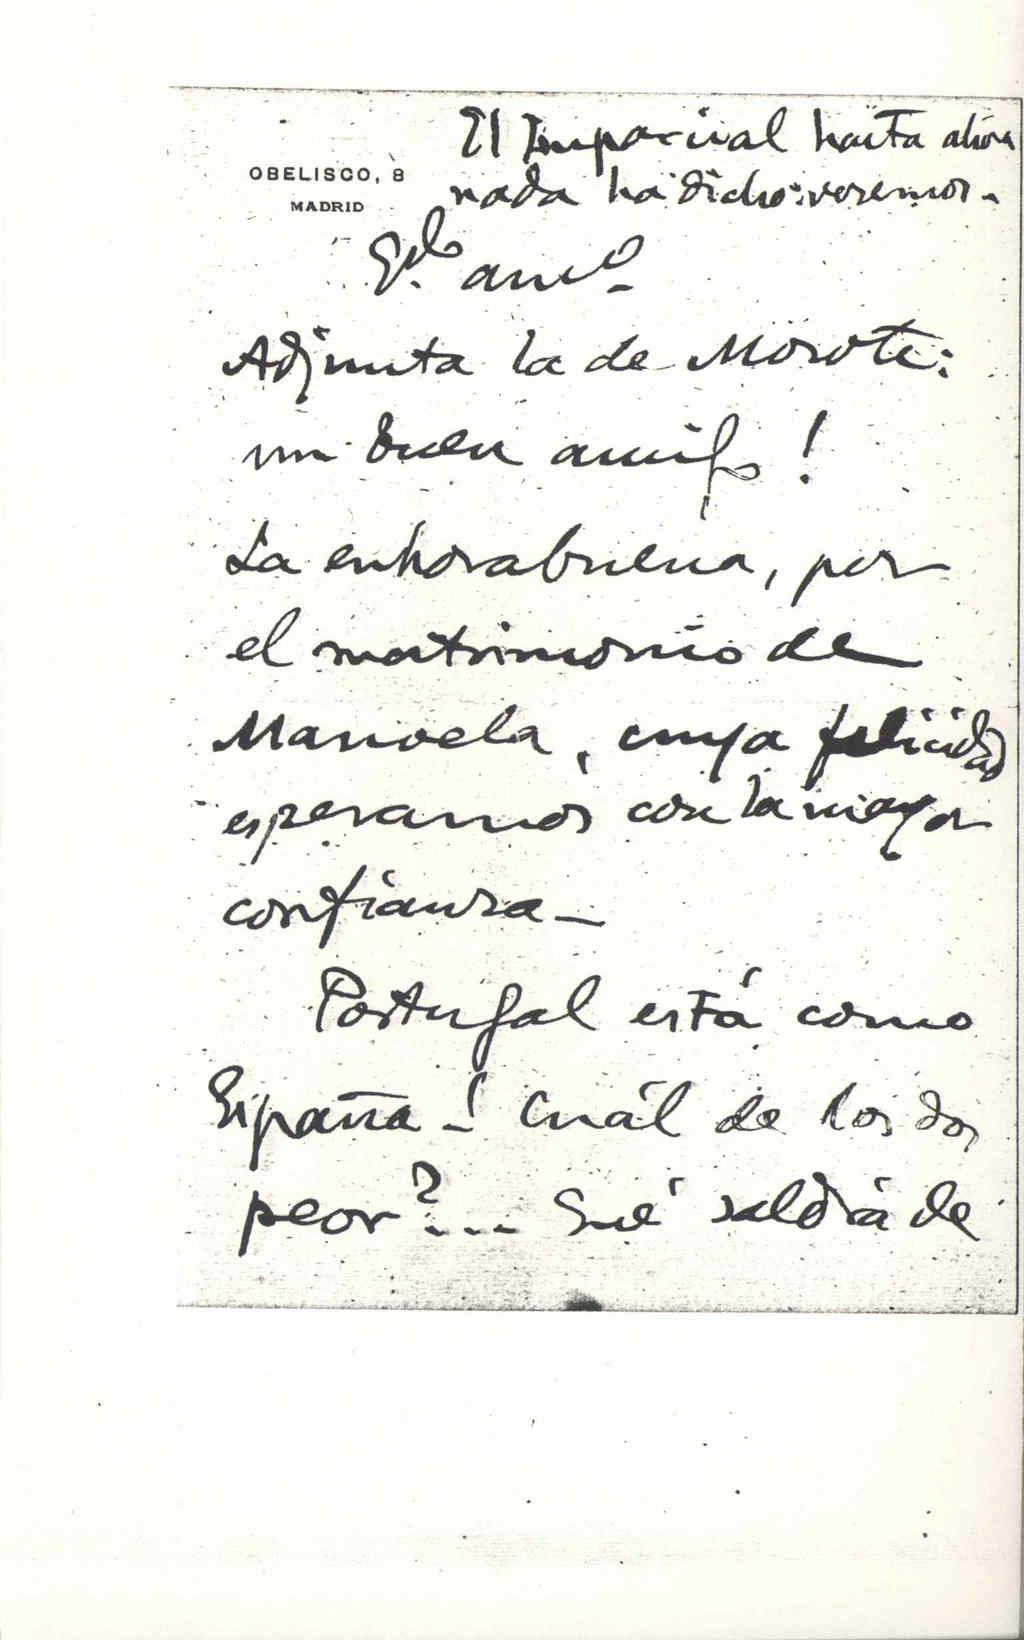 El Imparcial hasta ahora
nada ha dicho: veremos.
OBELISCO, 8
MADRID
Qdo. amo.
Adjunta la de Morote:
un buen amigo!
La enhorabuena, por
el matrimonio de
Manuela, cuya felicidad
esperamos con la mayor
confianza _
Portugal está como
España _! Cuál de los dos
peor?... Qué saldrá de